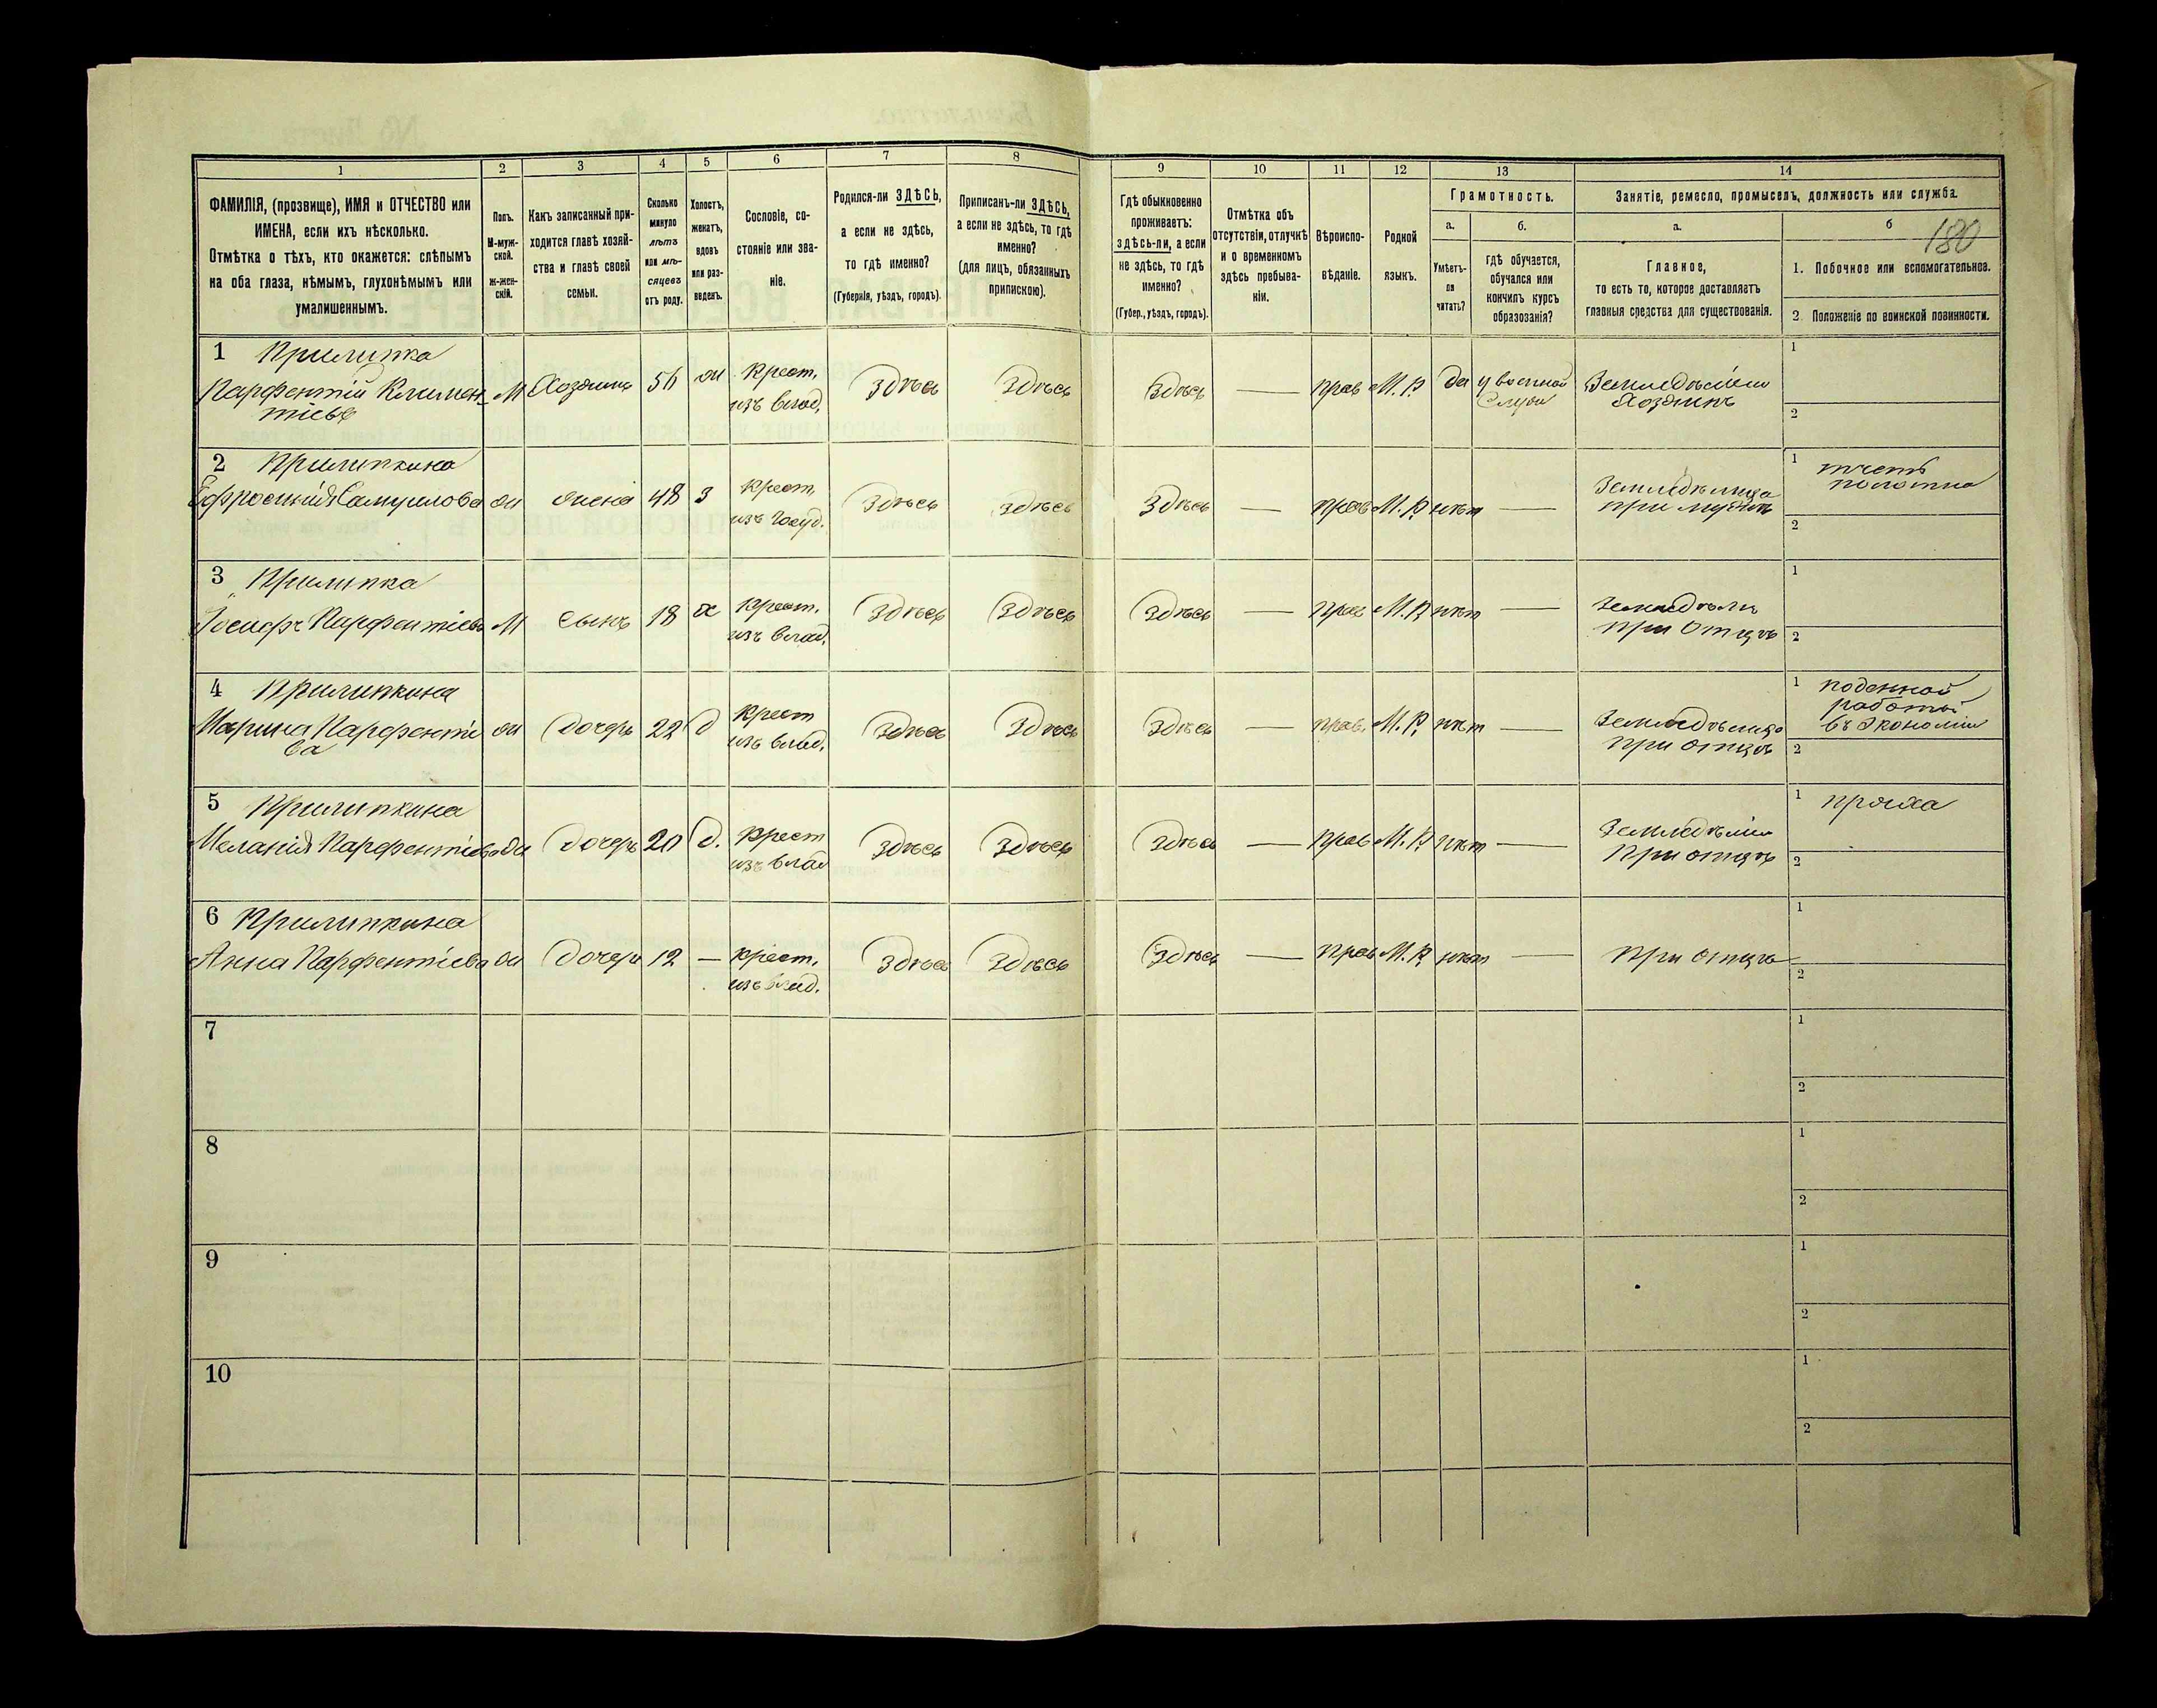 1 2 3 4 5 6 7 8 9 10 11 12 13 14
ФАМИЛІЯ, (прозвище), ИМЯ и ОТЧЕСТВО или
ИМЕНА, если ихъ нѣсколько.
Отмѣтка о тѣхъ, кто окажется: слѣпымъ
на оба глаза, нѣмымъ, глухонѣмымъ или
умалишеннымъ.
Полъ.
М-муж-
ской.
Ж-жен-
скій.
Какъ записанный при-
ходится главѣ хозяй-
ства и главѣ своей
семьи.
Сколько
минуло
лѣтъ
или мѣ-
сяцевъ
отъ роду.
Холостъ,
женатъ,
вдовъ
или раз-
веденъ.
Сословіе, со-
стояніе или зва-
ніе.
Родился-ли ЗДѢСЬ,
а если не здѣсь,
то гдѣ именно?
(Губернія, уѣздъ, городъ).
Приписанъ-ли ЗДѢСЬ,
а если не здѣсь, то гдѣ
именно?
(для лицъ, обязанныхъ
припискою).
Гдѣ обыкновенно
проживаетъ:
здѣсь-ли, а если
не здѣсь, то гдѣ
именно?
(Губер., уѣздъ, городъ).
Отмѣтка объ
отсутствіи, отлучкѣ
и о временномъ
здѣсь пребыва-
ніи.
Вѣроиспо-
вѣданіе.
Родной
языкъ.
Грамотность.
а.
Умѣетъ-
ли
читать?
б.
гдѣ обучается,
обучался или
кончилъ курсъ
образованія?
Занятіе, ремесло, промыселъ, должность или служба.
а.
Главное,
то есть то, которое доставляетъ
главныя средства для существованія.
б
180
1. Побочное или вспомогательное.
2. Положеніе по воинской повинности.
1 Прилипка
Парфентій Климен-
тіевъ
М Хозяинъ 56 ж Крест.
изъ влад.
Здѣсь Здѣсь Здѣсь — прав М.Р. да у военной
Служ
Земледѣлецъ
Хозяинъ
1
2
2 Прилипкина
Ефросинія Самуилова ж жена 48 з крест.
изъ госуд.
Здѣсь здѣсь Здѣсь — прав М.Р. нѣт —
Земледѣлица
при мужѣ
1 ткетъ
полотно
2
3 Прилипка
Іосифъ Парфентіевъ М сынъ 18 х крест.
изъ влад.
Здѣсь Здѣсь Здѣсь — прав М.Р. нѣт —
Земледѣлецъ
при Отцѣ
1
2
4 Прилипкина
Марина Парфентіе
ва
ж дочерь 22 д крест
изъ влад.
Здѣсь Здѣсь Здѣсь — прав. М.Р. нѣт —
Земледѣлица
при отцѣ
1 поденной
работы
въ Экономіи
2
5 Прилипкина
Меланія Парфентіева ж дочерь 20 д. крест
изъ влад
Здѣсь Здѣсь Здѣсь — прав М.Р. нѣт —
При отцѣ
1 пряха
2
6 Прилипкина
Анна Парфентіева ж дочерь 12 — крест.
изъ влад.
Здѣсь Здѣсь Здѣсь — прав М.Р. нѣт —
при отцѣ
1
2
7
1
2
8
1
2
9
1
2
10
1
2